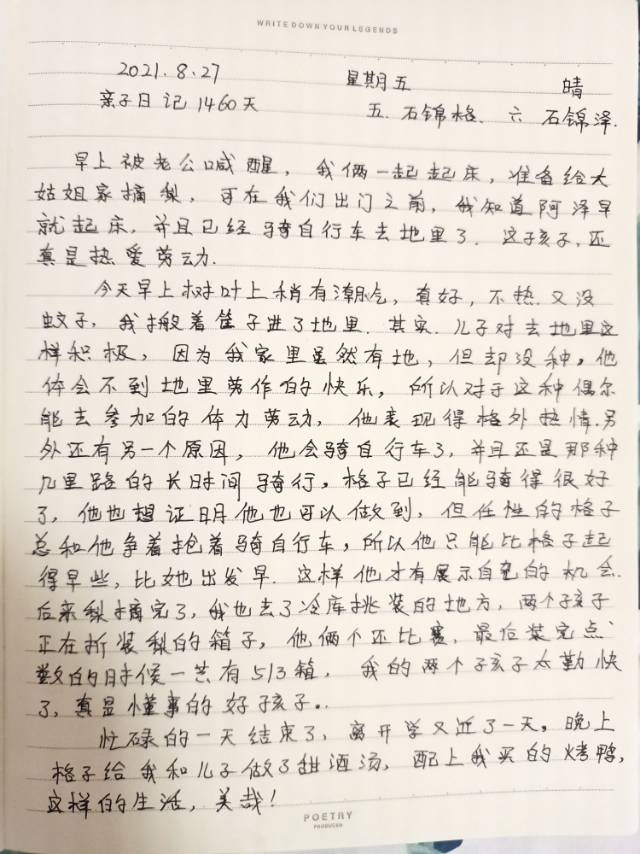 WRITE DOWN YOUR LEGENDS
2021.8.27 星期五 晴
亲子日记1460天 五.石锦格.六 石锦泽.
早上被老公喊醒，我俩一起起床，准备给大
姑姐家摘梨，可在我们出门之前，我知道阿泽早
就起床，并且已经骑自行车去地里了.这孩子,还
真是热爱劳动.
今天早上树叶上稍有潮气，真好，不热.又没
蚊子，我搬着筐子进了地里.其实.儿子对去地里这
样积极，因为我家里虽然有地，但却没种，他
体会不到地里劳作的快乐，所以对于这种偶尔
能去参加的体力劳动，他表现得格外热情.另
外还有另一个原因，他会骑自行车了，并且还是那种
几里路的长时间骑行，格子已经能骑得很好
了，他也想证明他也可以做到，但任性的格子
总和他争着抢着骑自行车，所以他只能比格子起
得早些，比她出发早.这样他才有展示自己的机会.
后来梨摘完了，我也去了冷库挑装的地方，两个孩子
正在折装梨的箱子，他俩个还比赛.最后装完点
数的时候一共有513箱，我的两个孩子太勤快
了，真是懂事的好孩子..
忙碌的一天结束了，离开学又近了一天，晚上
格子给我和儿子做了甜酒汤，配上我买的烤鸭，
这样的生活，美哉！
POETRY
PRODUCER